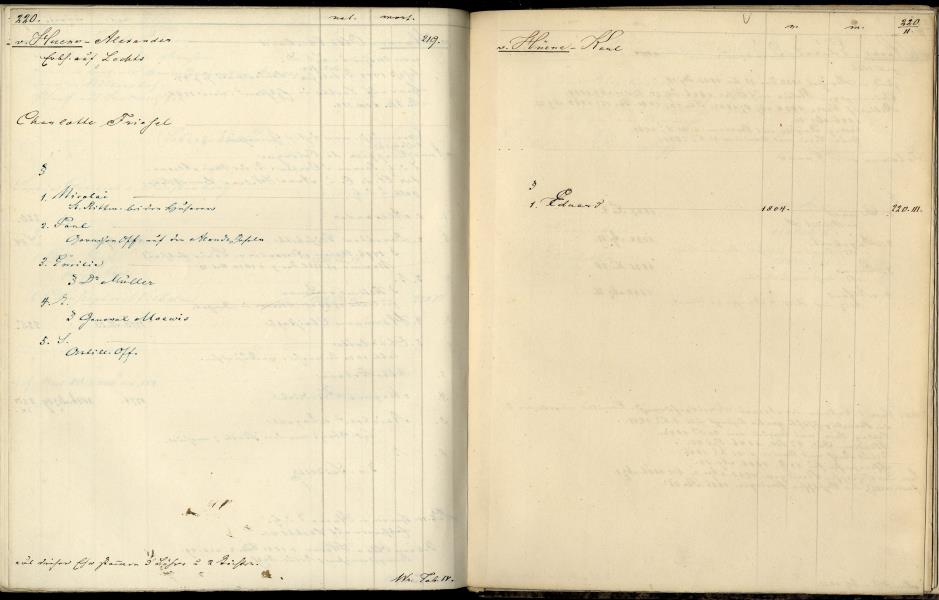 220.
nat. mort.
v. Huene - Alexander 219.
Erbh. auf Lechts
Charlotte Friesel
3
1. Nicolai
St. Rittm. bei den Husaren
2. Paul
Garnison Off. auf den Alands Inseln
3. Emilie
3 Dr Müller
4. N.
3 General Moewis
5. S.
Artill. Off.
aus dieser Ehe stammen 3 Söhne u 2 Töchter.
Tab. IV.
n. m. 220
II.
v. Hüene - Karl
3
1. Eduard 1804. 220. III.